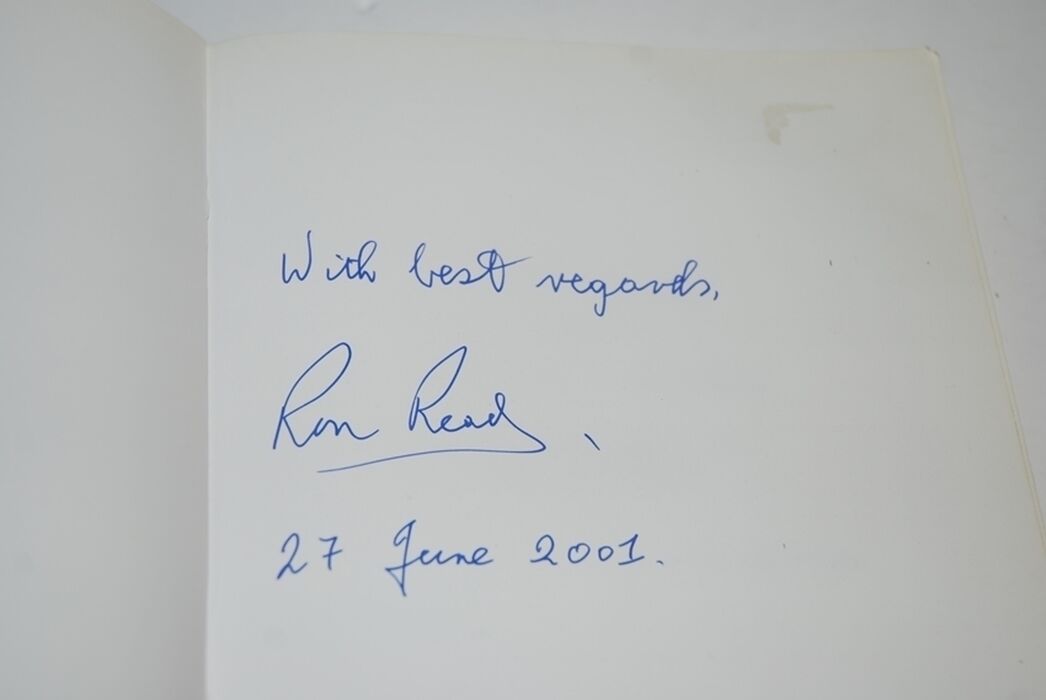 With best regards,
Ron Read.
27 June 2001.